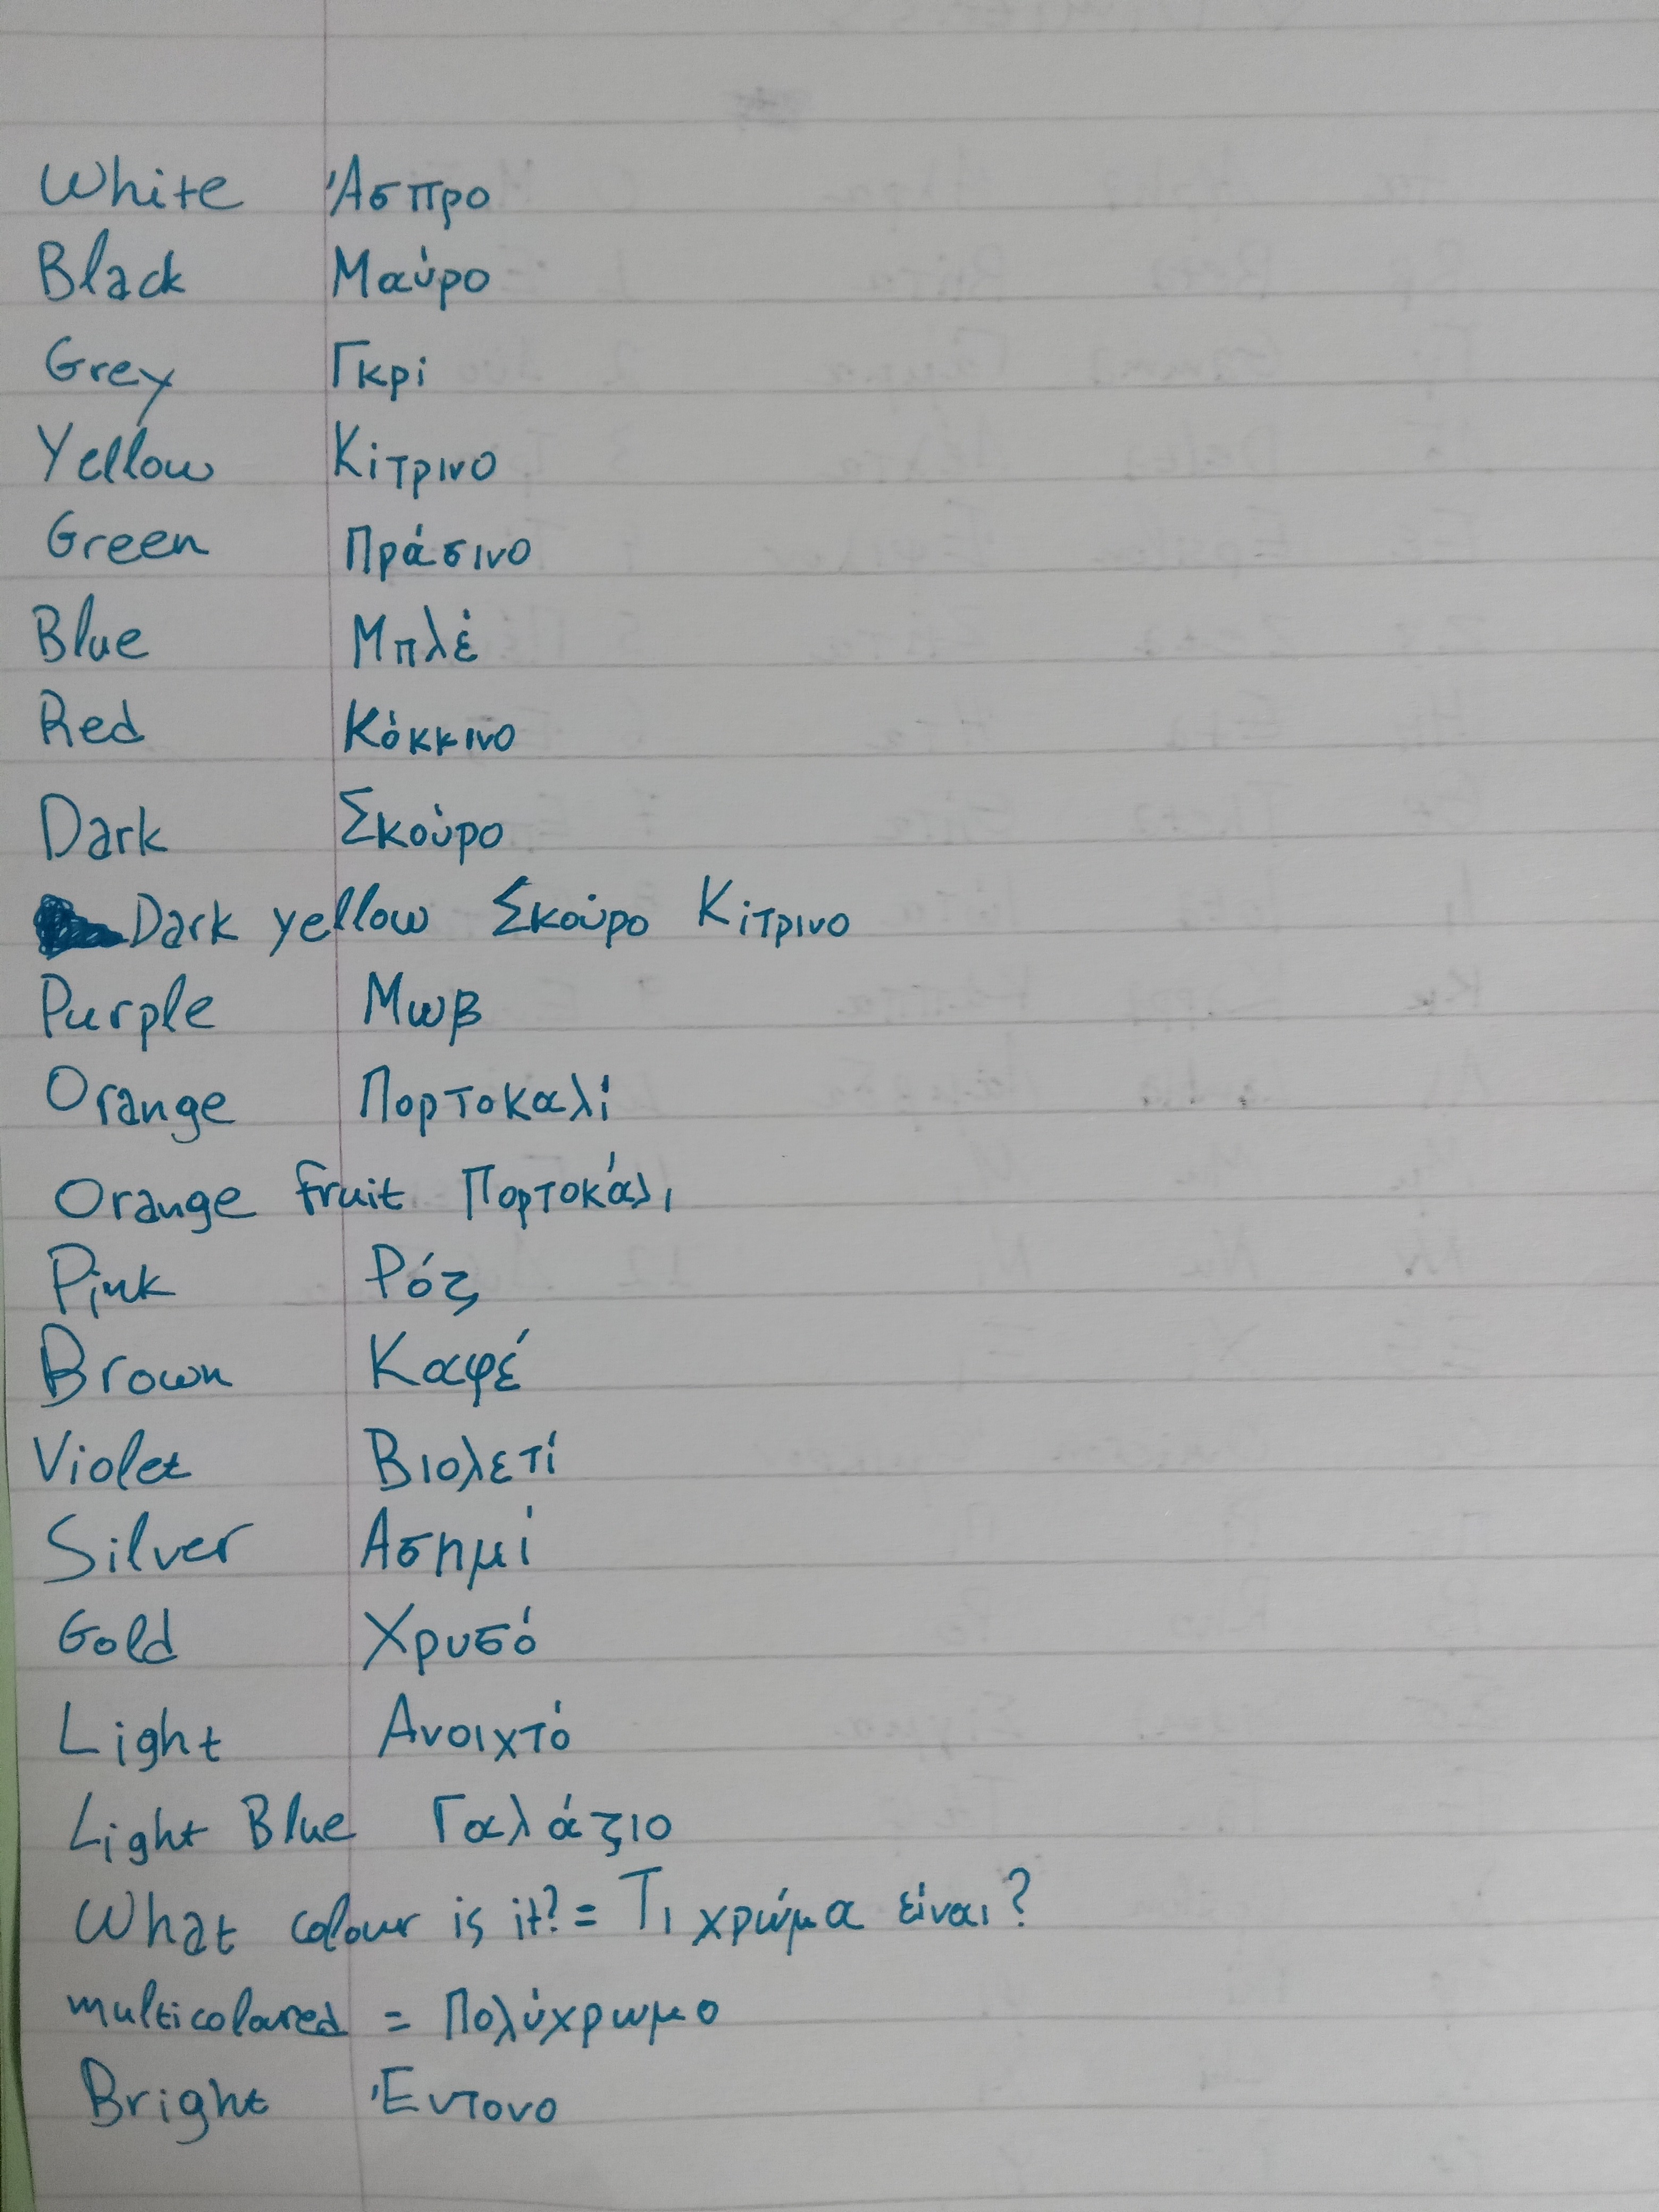 White Άσπρο
Black Μαύρο
Grey Γκρί
Yellow Κίτρινο
Green Πράσινο
Blue Μπλέ
Red Κόκκινο
Dark Σκούρο
Dark yellow Σκούρο Κίτρινο
Purple Μωβ
Orange Πορτοκαλί
Orange fruit Πορτοκάλι
Pink Ρόζ
Brown Καφέ
Violet Βιολετί
Silver Ασημί
Gold Χρυσό
Light Ανοιχτό
Light Blue Γαλάζιο
What colour is it? = Τι χρώμα είναι?
multicoloured = Πολύχρωμο
Bright Έντονο